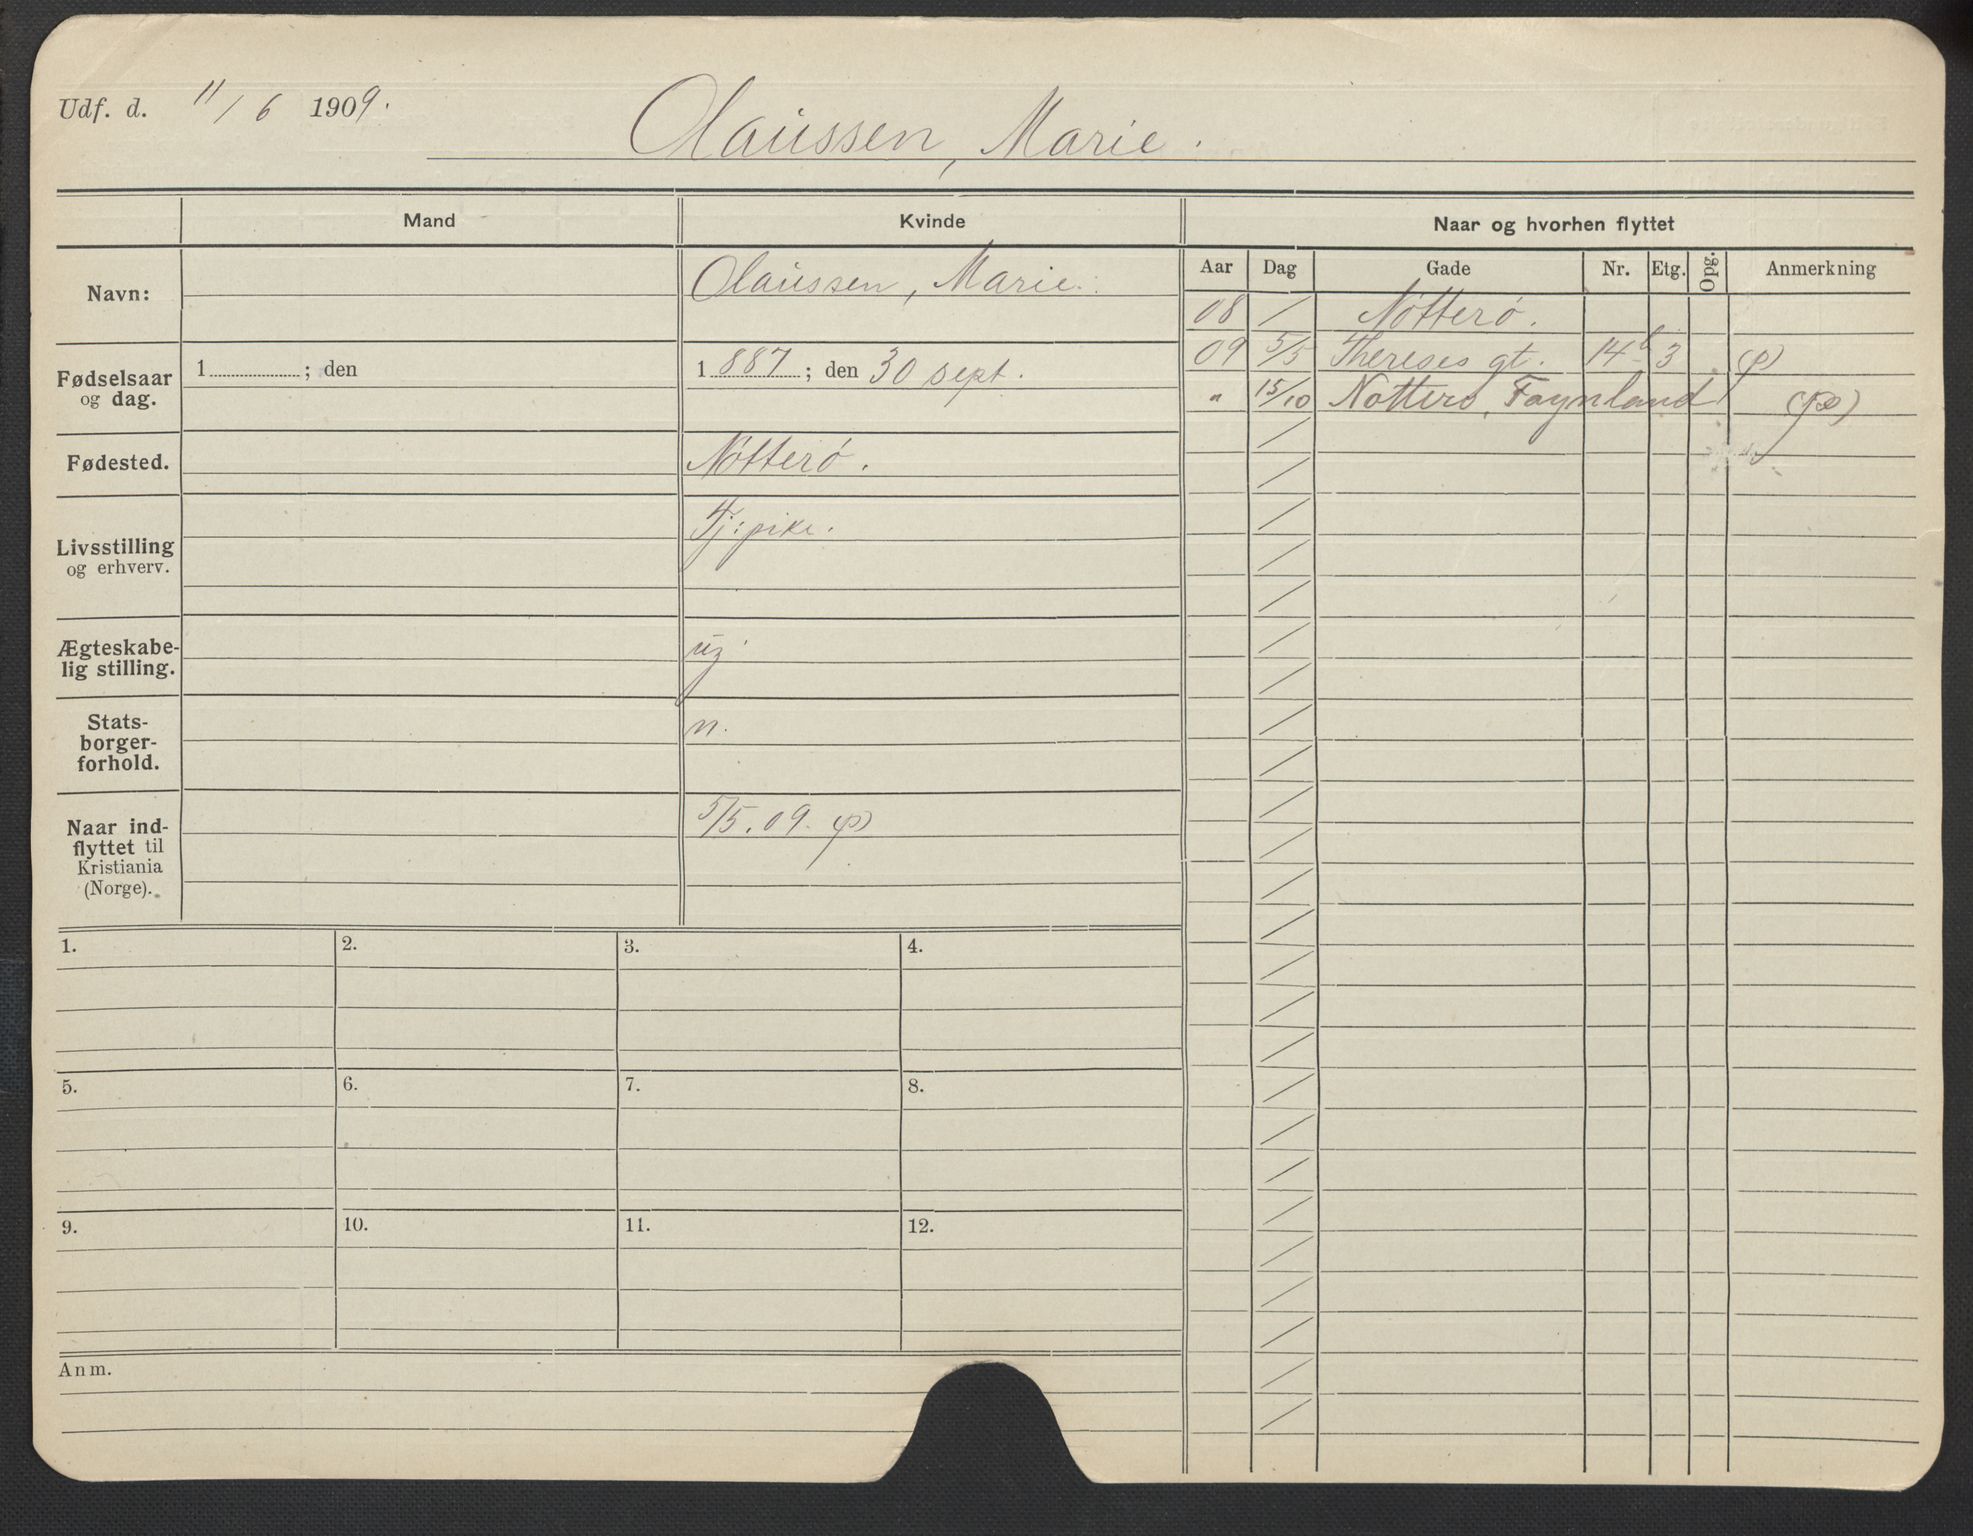 Udf. d. 11/6 1909.
Olaussen, Marie.
Mand
Kvinde
Naar og hvorhen flyttet
Aar Dag Gade Nr. Etg. Opg. Anmerkning
Navn:
Olaussen, Marie.
08 / Nøtterø.
09 5/5 Thereses gt. 14b 3 (p)
" 15/10 Nøtterø, Føynland
Fødselsaar
og dag.
1 ; den
1887; den 30 sept.
Fødested.
Nøtterø.
Livsstilling
og erhverv.
Tj: pike.
Ægteskabe-
lig stilling.
ug
Stats-
borger-
forhold.
n.
Naar ind-
flyttet til
Kristiania
(Norge).
5/5. 09. (p)
1. 2. 3. 4.
5. 6. 7. 8.
9. 10. 11. 12.
Anm.